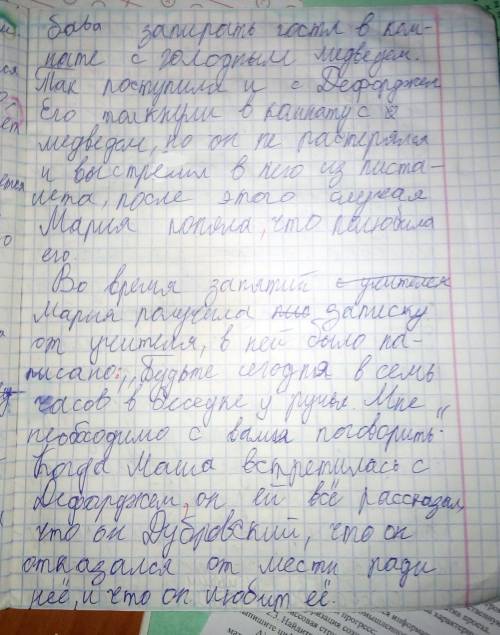 бава запирать гостя в ком-
нате с голодным медведем.
Так поступили и с Дефорджем
Его толкнули в комнату с
медведем, но он не растерялся
и выстрелил в него из писта-
лета, после этого случая
Мария поняла, что полюбила
его.
Во время занятий с учителем
Мария получила записку
от учителя, в ней было на-
писано: „Будьте сегодня в семь
часов в беседке у ручья. Мне
необходимо с вами поговорить"
Когда Маша встретилась с
Дефорджем, он ей всё рассказал,
что он Дубровский, что он
отказался от мести ради
неё, и что он любит её.